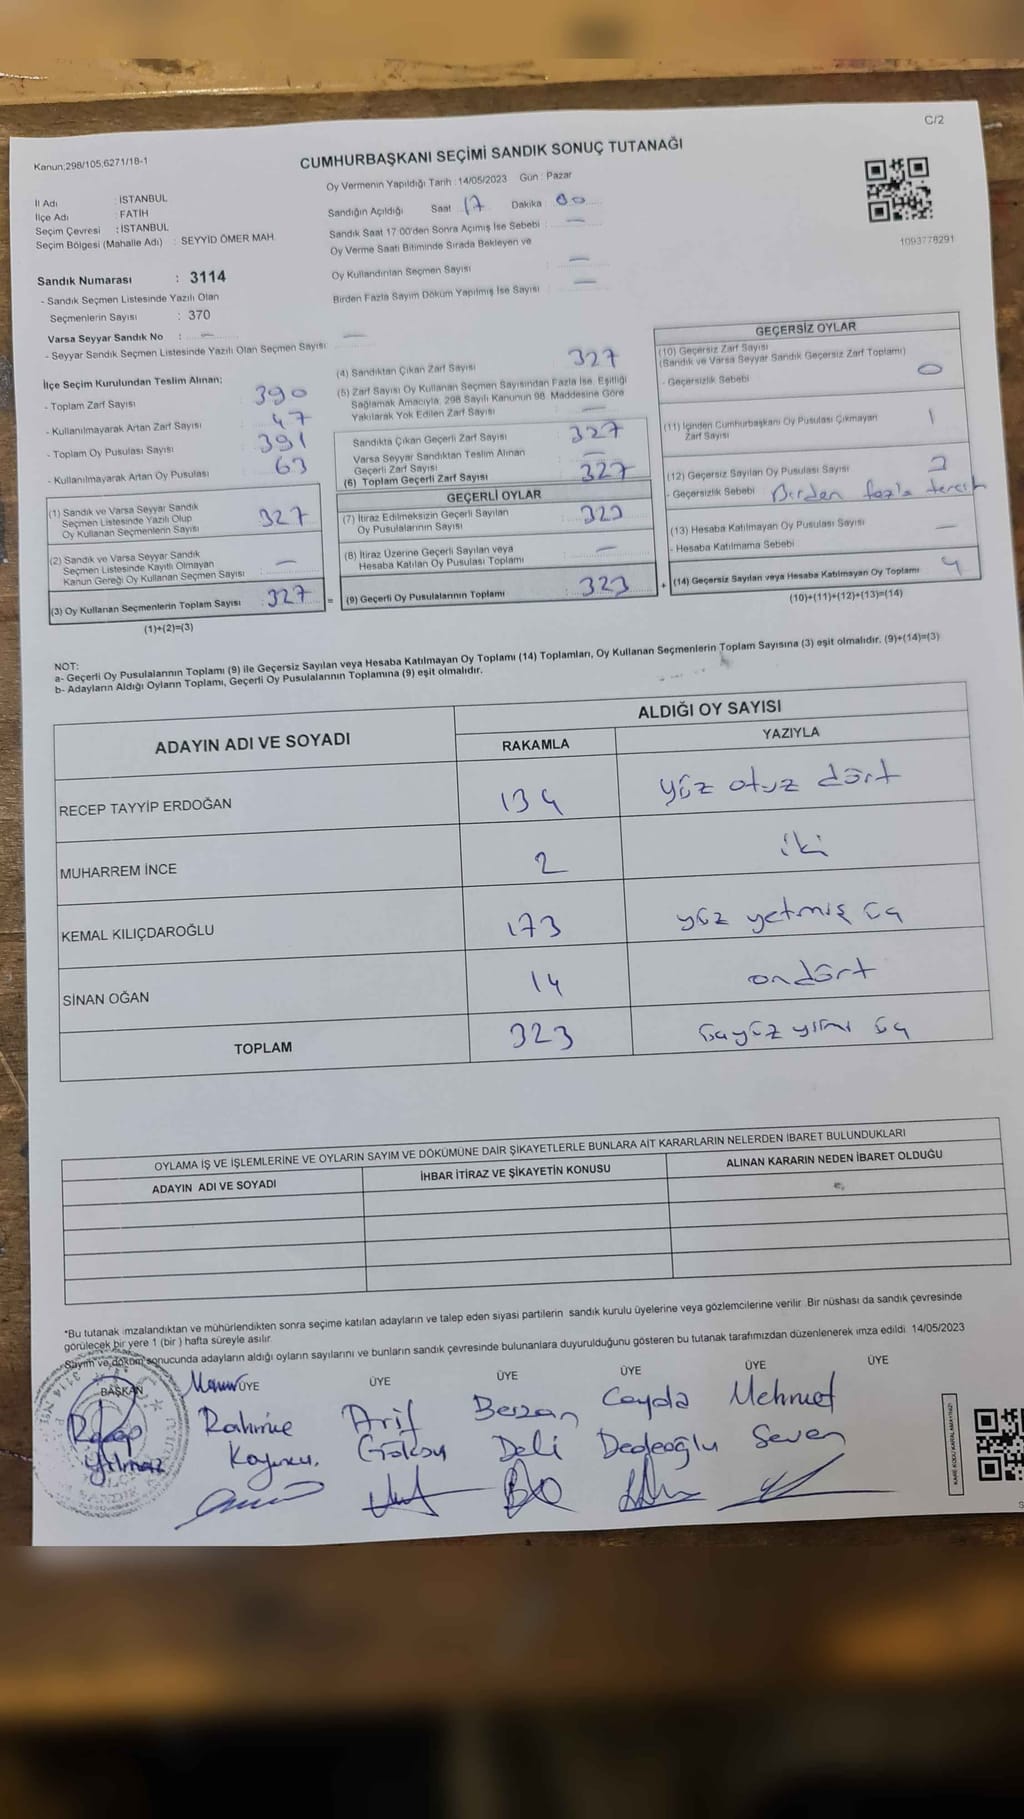 C/2
Kanun;298/105,6271/18-1
CUMHURBAŞKANI SEÇİMİ SANDIK SONUÇ TUTANAĞI
Oy Vermenin Yapıldığı Tarih : 14/05/2023 Gün : Pazar
İl Adı : İSTANBUL
İlçe Adı : FATİH
Seçim Çevresi : İSTANBUL
Seçim Bölgesi (Mahalle Adı) : SEYYİD ÖMER MAH.
Sandığın Açıldığı Saat 17 Dakika 00
Sandık Saat 17:00'den Sonra Açılmış İse Sebebi : —
Oy Verme Saati Bitiminde Sırada Bekleyen ve
Oy Kullandırılan Seçmen Sayısı : —
Birden Fazla Sayım Döküm Yapılmış İse Sayısı : —
1093778291
Sandık Numarası : 3114
- Sandık Seçmen Listesinde Yazılı Olan
Seçmenlerin Sayısı : 370
Varsa Seyyar Sandık No : —
- Seyyar Sandık Seçmen Listesinde Yazılı Olan Seçmen Sayısı —
İlçe Seçim Kurulundan Teslim Alınan;
- Toplam Zarf Sayısı 390
- Kullanılmayarak Artan Zarf Sayısı 47
- Toplam Oy Pusulası Sayısı 391
- Kullanılmayarak Artan Oy Pusulası 63
(1) Sandık ve Varsa Seyyar Sandık
Seçmen Listesinde Yazılı Olup
Oy Kullanan Seçmenlerin Sayısı 327
(2) Sandık ve Varsa Seyyar Sandık
Seçmen Listesinde Kayıtlı Olmayan
Kanun Gereği Oy Kullanan Seçmen Sayısı : —
(3) Oy Kullanan Seçmenlerin Toplam Sayısı : 327 =
(1)+(2)=(3)
(4) Sandıktan Çıkan Zarf Sayısı 327
(5) Zarf Sayısı Oy Kullanan Seçmen Sayısından Fazla İse, Eşitliği
Sağlamak Amacıyla, 298 Sayılı Kanunun 98. Maddesine Göre
Yakılarak Yok Edilen Zarf Sayısı —
Sandıkta Çıkan Geçerli Zarf Sayısı 327
Varsa Seyyar Sandıktan Teslim Alınan
Geçerli Zarf Sayısı —
(6) Toplam Geçerli Zarf Sayısı 327
GEÇERLİ OYLAR
(7) İtiraz Edilmeksizin Geçerli Sayılan
Oy Pusulalarının Sayısı : 323
(8) İtiraz Üzerine Geçerli Sayılan veya
Hesaba Katılan Oy Pusulası Toplamı : —
(9) Geçerli Oy Pusulalarının Toplamı : 323 +
GEÇERSİZ OYLAR
(10) Geçersiz Zarf Sayısı
(Sandık ve Varsa Seyyar Sandık Geçersiz Zarf Toplamı)
- Geçersizlik Sebebi 0
(11) İçinden Cumhurbaşkanı Oy Pusulası Çıkmayan
Zarf Sayısı 1
(12) Geçersiz Sayılan Oy Pusulası Sayısı
- Geçersizlik Sebebi Birden fazla tercih
(13) Hesaba Katılmayan Oy Pusulası Sayısı —
- Hesaba Katılmama Sebebi
(14) Geçersiz Sayılan veya Hesaba Katılmayan Oy Toplamı 4
(10)+(11)+(12)+(13)=(14)
NOT:
a- Geçerli Oy Pusulalarının Toplamı (9) ile Geçersiz Sayılan veya Hesaba Katılmayan Oy Toplamı (14) Toplamları, Oy Kullanan Seçmenlerin Toplam Sayısına (3) eşit olmalıdır. (9)+(14)=(3)
b- Adayların Aldığı Oyların Toplamı, Geçerli Oy Pusulalarının Toplamına (9) eşit olmalıdır.
ADAYIN ADI VE SOYADI ALDIĞI OY SAYISI
RAKAMLA YAZIYLA
RECEP TAYYİP ERDOĞAN 134 yüz otuz dört
MUHARREM İNCE 2 iki
KEMAL KILIÇDAROĞLU 173 yüz yetmiş üç
SİNAN OĞAN 14 ondört
TOPLAM 323 üçyüz yirmi üç
OYLAMA İŞ VE İŞLEMLERİNE VE OYLARIN SAYIM VE DÖKÜMÜNE DAİR ŞİKAYETLERLE BUNLARA AİT KARARLARIN NELERDEN İBARET BULUNDUKLARI
ADAYIN ADI VE SOYADI İHBAR İTİRAZ VE ŞİKAYETİN KONUSU ALINAN KARARIN NEDEN İBARET OLDUĞU
*Bu tutanak imzalandıktan ve mühürlendikten sonra seçime katılan adayların ve talep eden siyasi partilerin sandık kurulu üyelerine veya gözlemcilerine verilir. Bir nüshası da sandık çevresinde
görülecek bir yere 1 (bir) hafta süreyle asılır.
Sayım ve döküm sonucunda adayların aldığı oyların sayılarını ve bunların sandık çevresinde bulunanlara duyurulduğunu gösteren bu tutanak tarafımızdan düzenlenerek imza edildi. 14/05/2023
BAŞKAN ÜYE ÜYE ÜYE ÜYE ÜYE ÜYE
Recep Rahmie Arif Berzan Cayda Mehmet
Yılmaz Göksu Deli Dedeoğlu Seven
KARE KODU KARALAMAYINIZ!